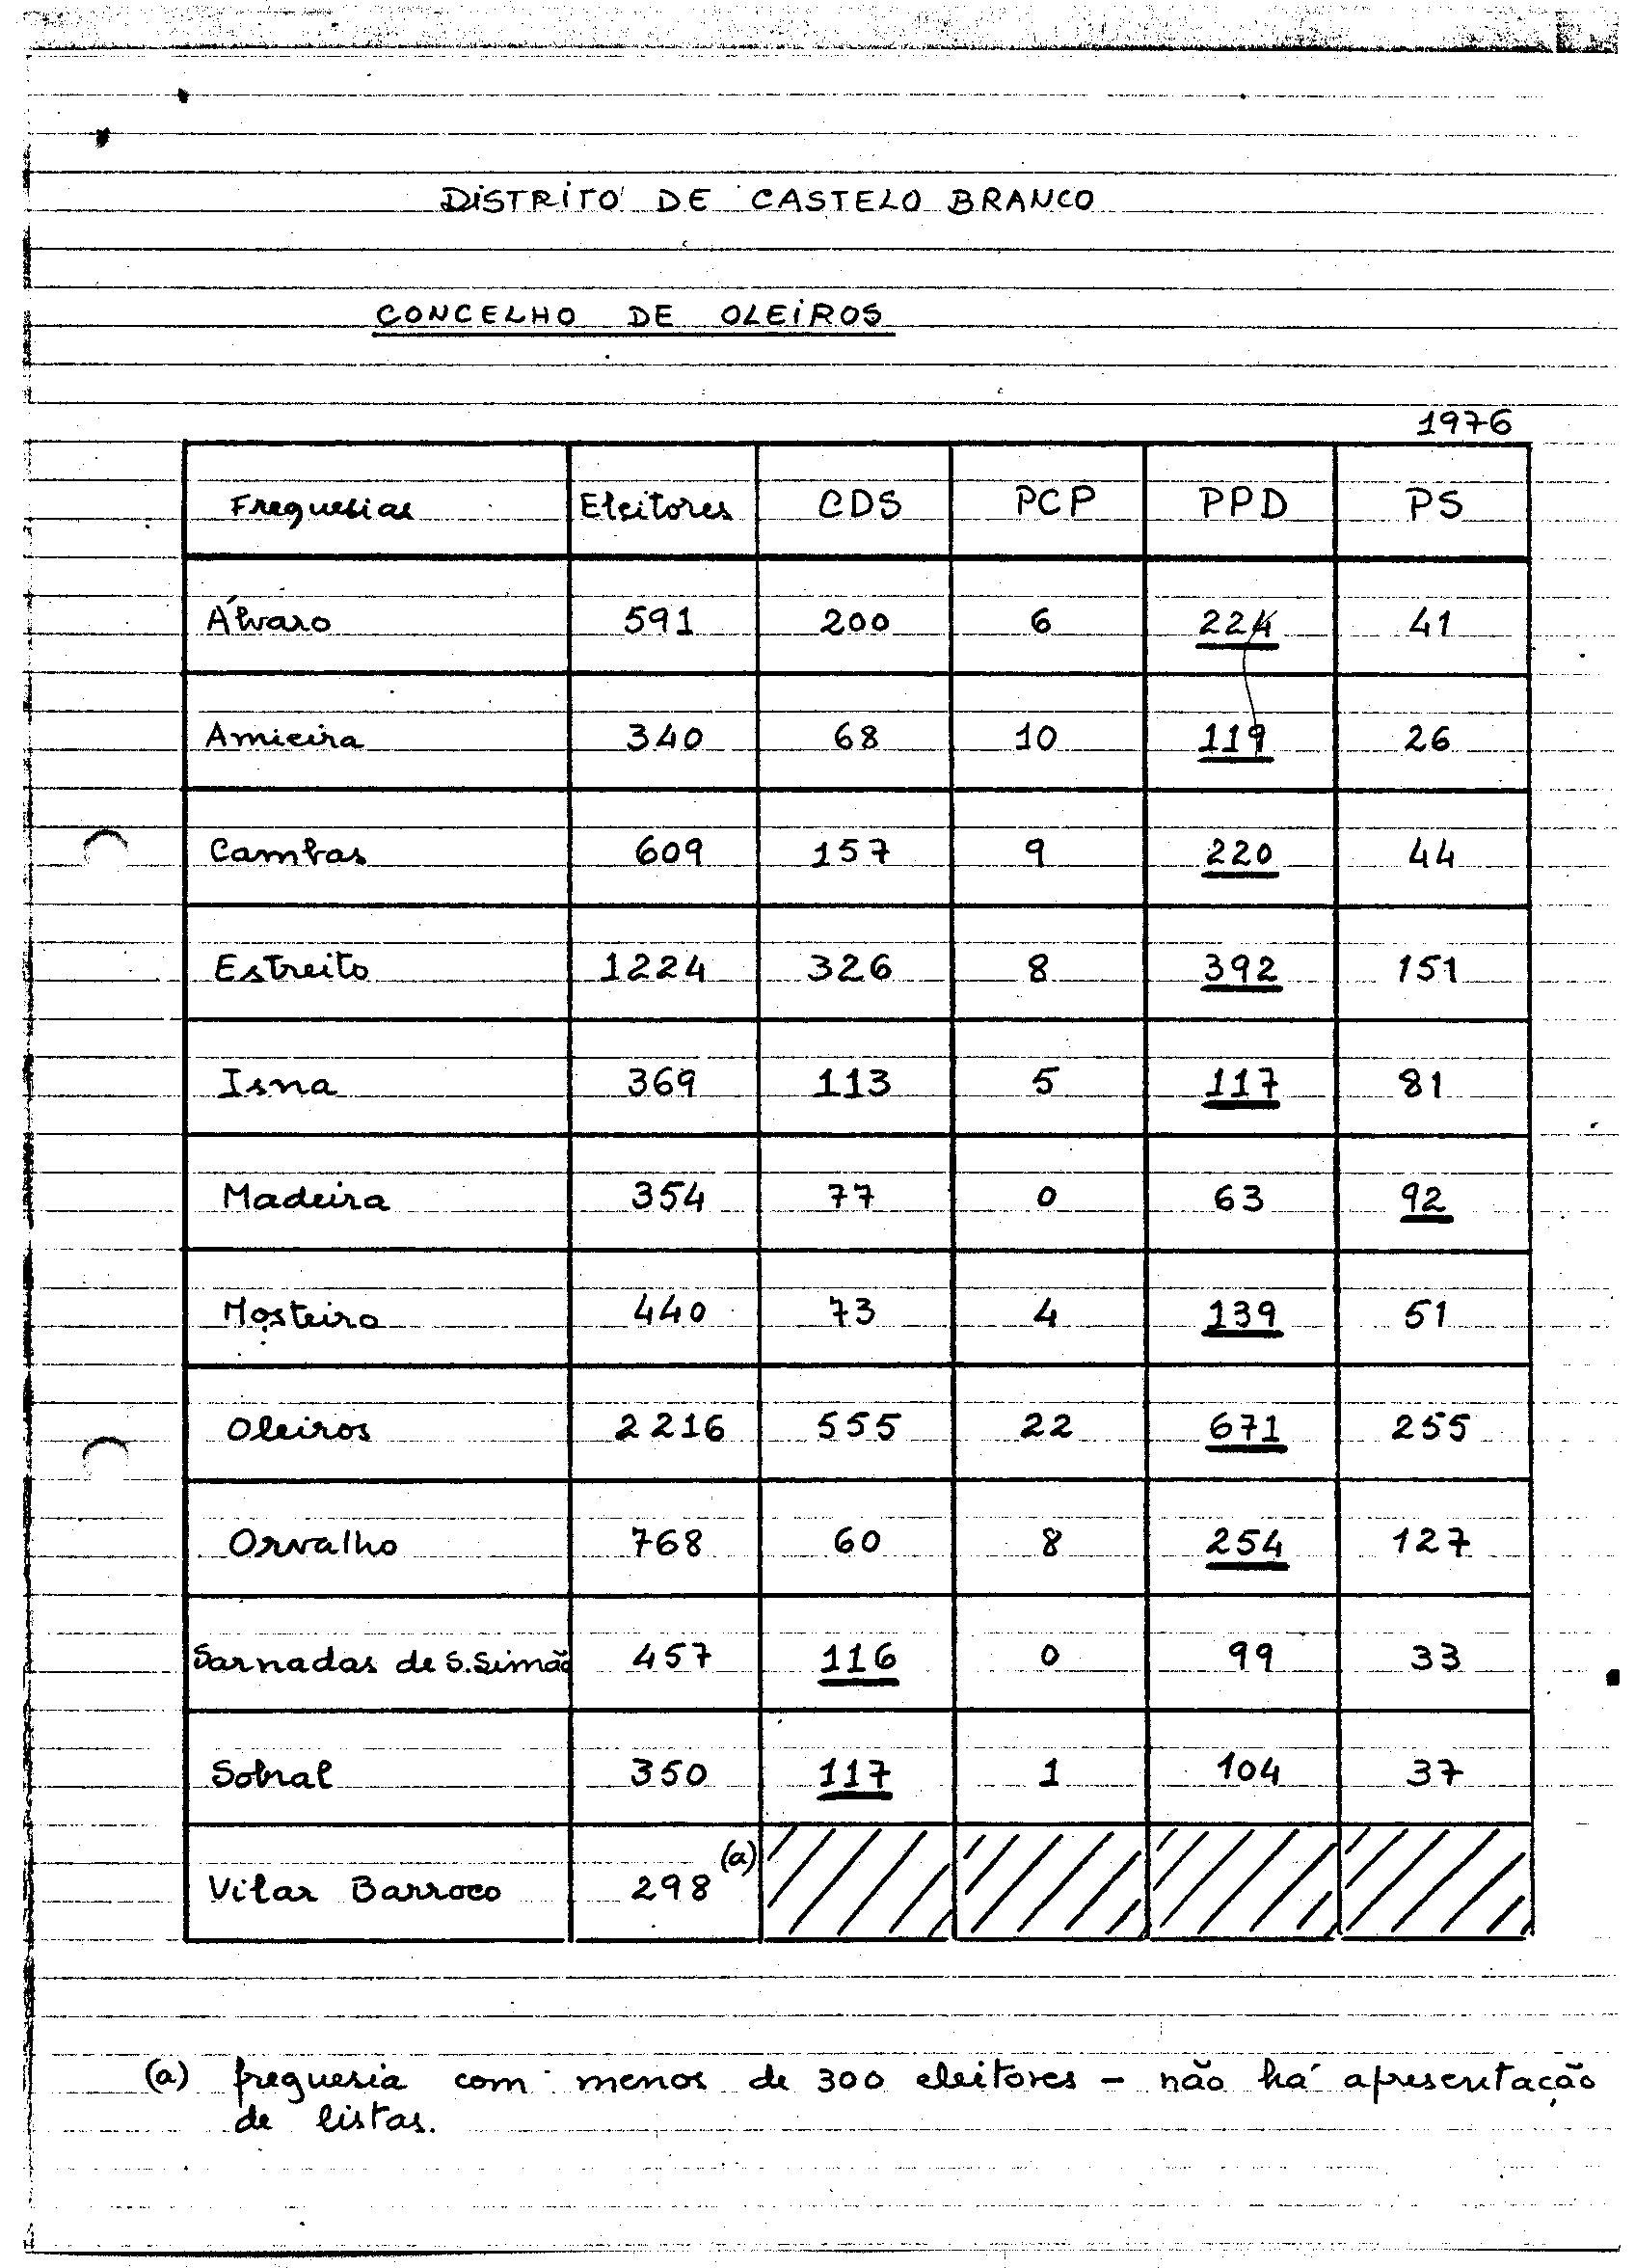 DISTRITO DE CASTELO BRANCO
CONCELHO DE OLEIROS
1976
Freguesias Eleitores CDS PCP PPD PS
Álvaro 591 200 6 224 41
Amieira 340 68 10 119 26
Cambas 609 157 9 220 44
Estreito 1224 326 8 392 151
Isna 369 113 5 117 81
Madeira 354 77 0 63 92
Mosteiro 440 73 4 139 51
Oleiros 2216 555 22 671 255
Orvalho 768 60 8 254 127
Sarnadas de S. Simão 457 116 0 99 33
Sobral 350 117 1 104 37
Vilar Barroco 298 (a)
(a) freguesia com menos de 300 eleitores - não há apresentação
de listas.